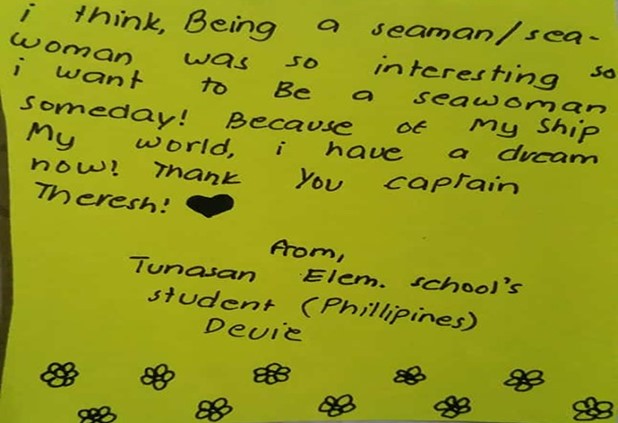 i think, Being a seaman/sea-
woman was so interesting so
i want to Be a seawoman
someday! Because of My Ship
My world, i have a dream
now! Thank You captain
Theresh! ♥
from,
Tunasan Elem. school's
student (Phillipines)
Devie